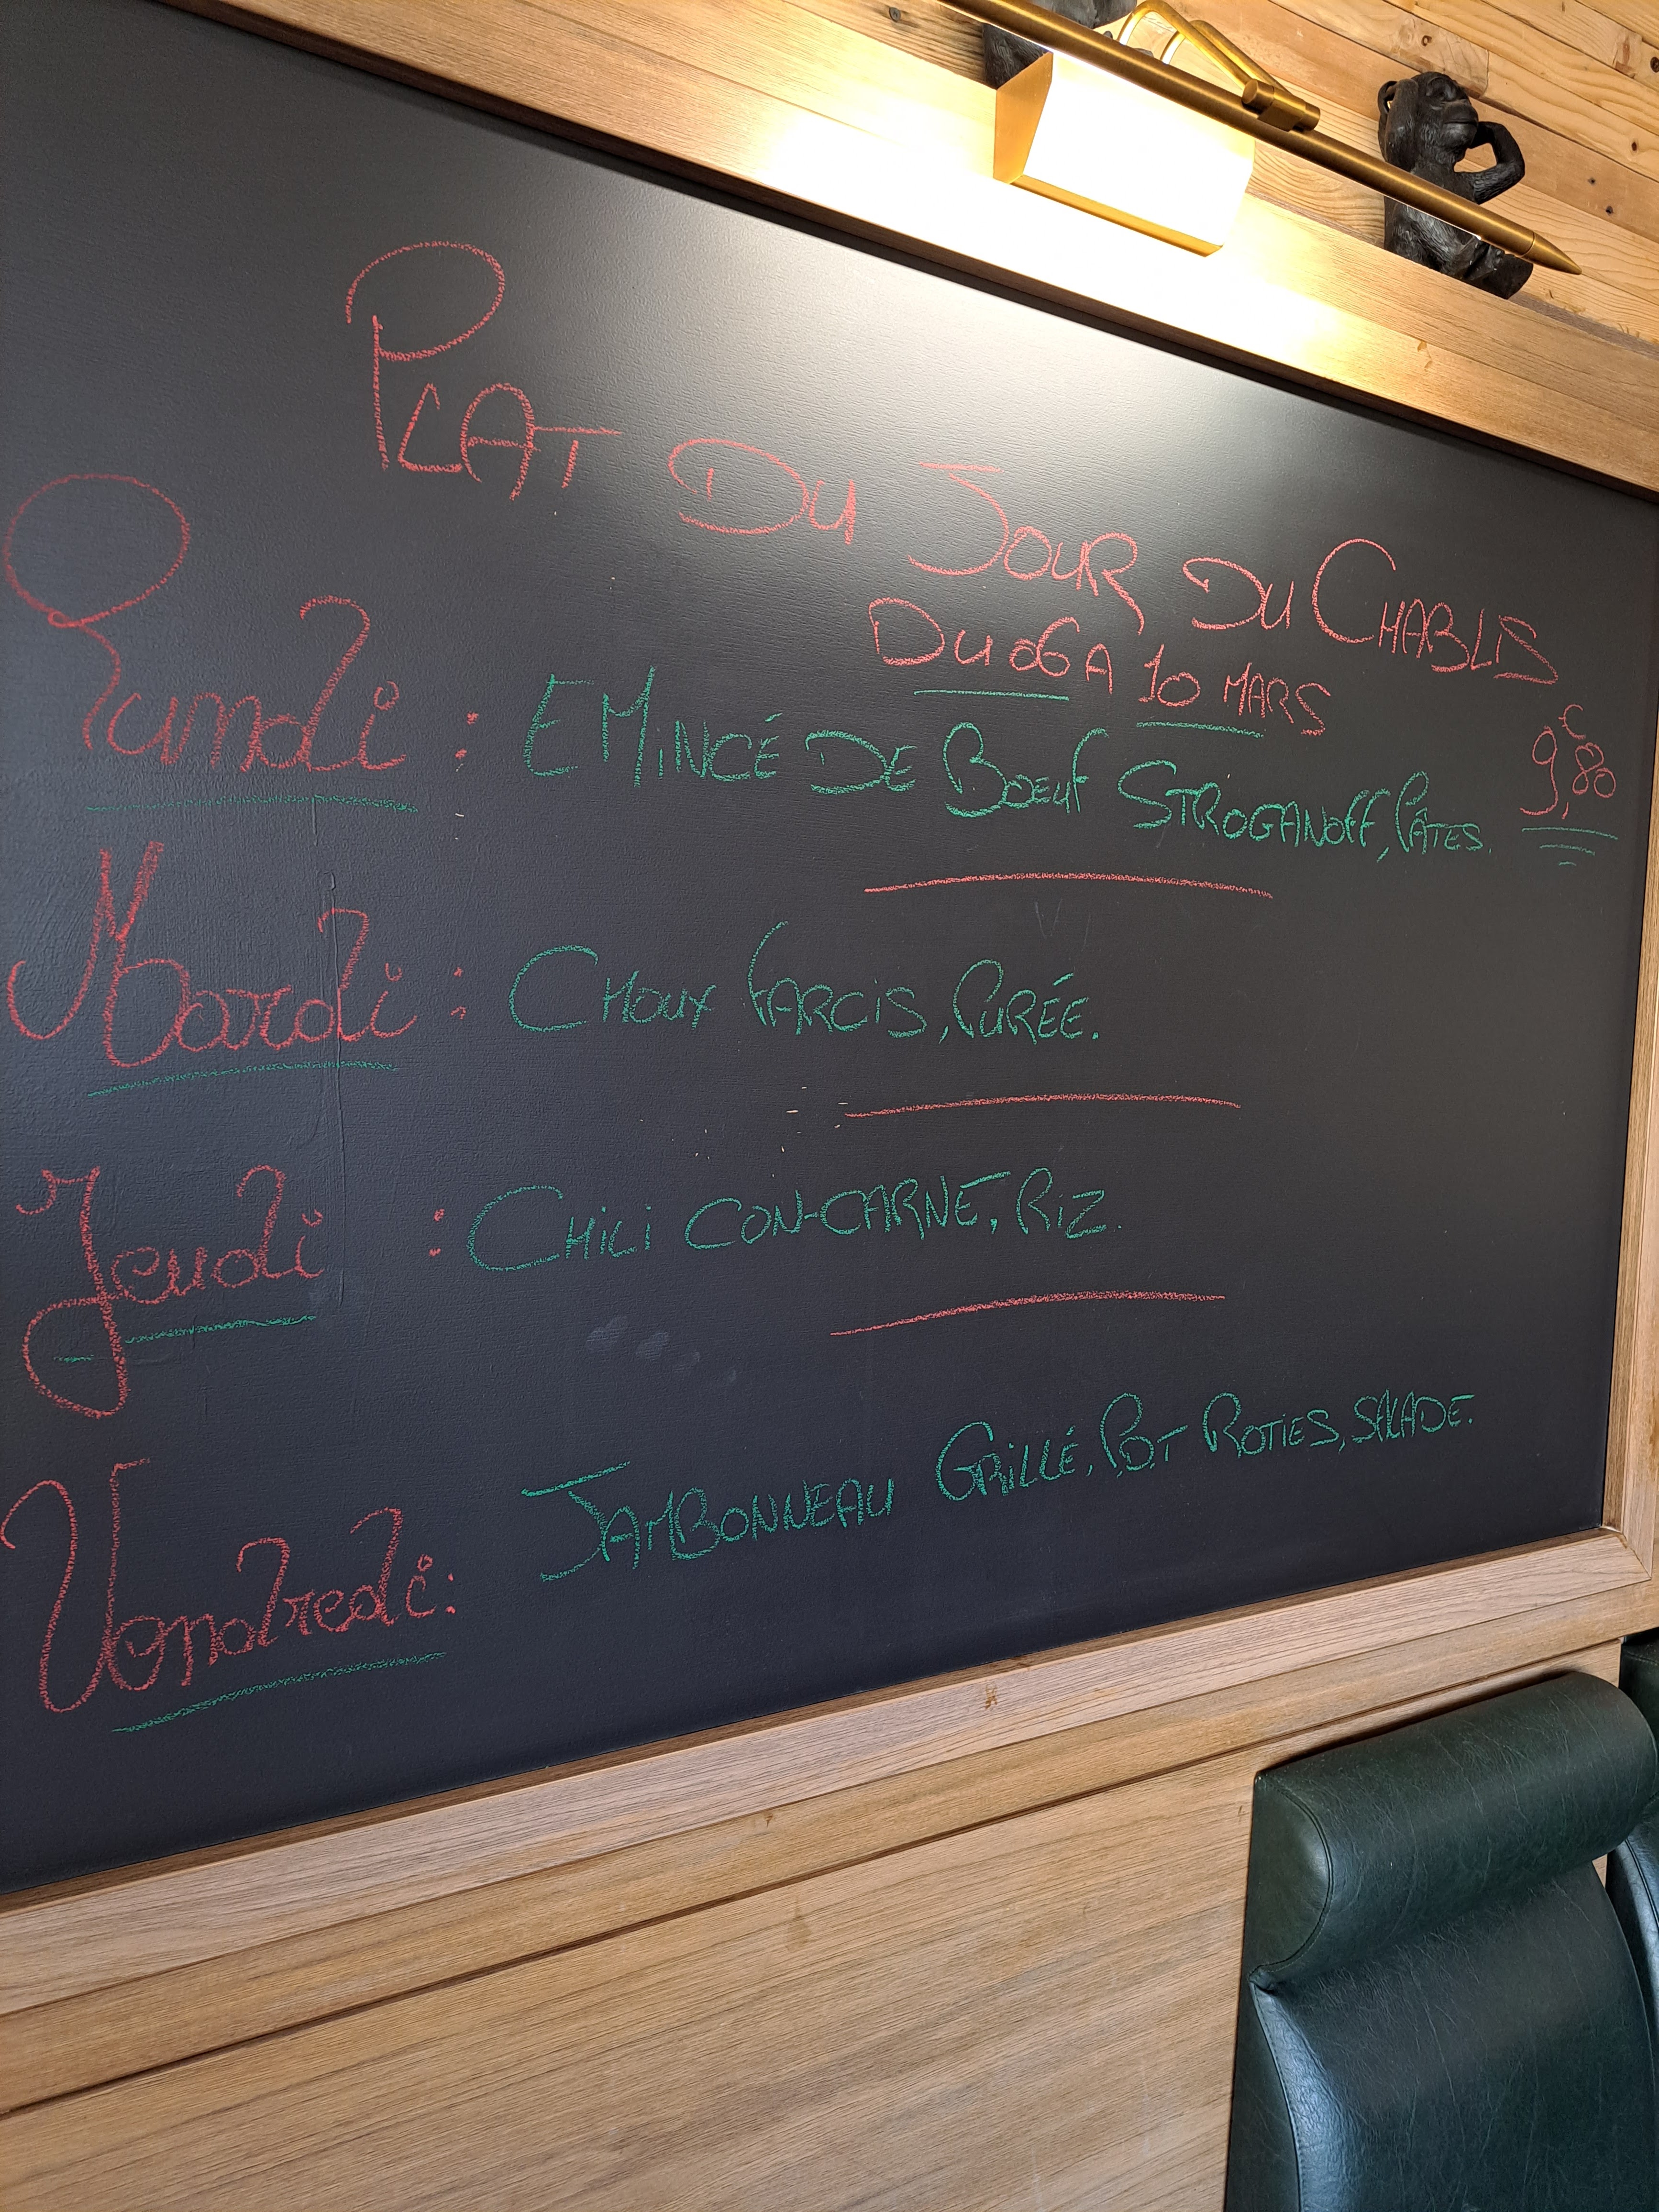 PLAT DU JOUR DU CHABLIS
DU 06 A 10 MARS
9,80€
Lundi : EMINCÉ DE BOEUF STROGANOFF, PÂTES.
Mardi : CHOUX FARCIS, PURÉE.
Jeudi : CHILI CON-CARNE, RIZ.
Vendredi : JAMBONNEAU GRILLÉ, P.D.T ROTIES, SALADE.